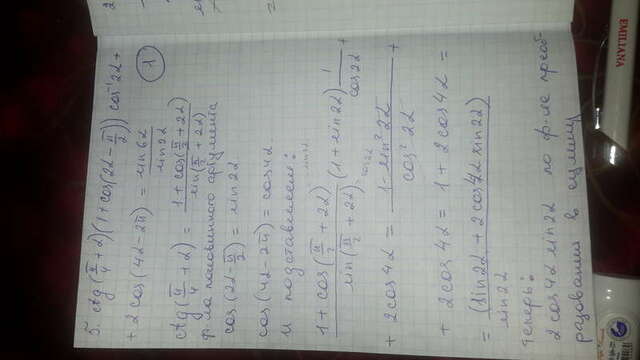 5. ctg(π/4 + α)(1 + cos(2α - π/2)) cos⁻¹ 2α +
+ 2cos(4α - 2π) = sin6α / sin2α
1
ctg(π/4 + α) = (1 + cos(π/2 + 2α)) / sin(π/2 + 2α)
ф-ла половинного аргумента
cos(2α - π/2) = sin2α
cos(4α - 2π) = cos4α.
и подставляем:
(1 + cos(π/2 + 2α)) / sin(π/2 + 2α) · (1 + sin2α) 1/cos2α +
+ 2cos4α = (1 - sin²2α) / cos²2α +
+ 2cos4α = 1 + 2cos4α =
= (sin2α + 2cos4α sin2α) / sin2α
Теперь:
2cos4α sin2α по ф-ле преоб-
разования в сумму
EMILIANA